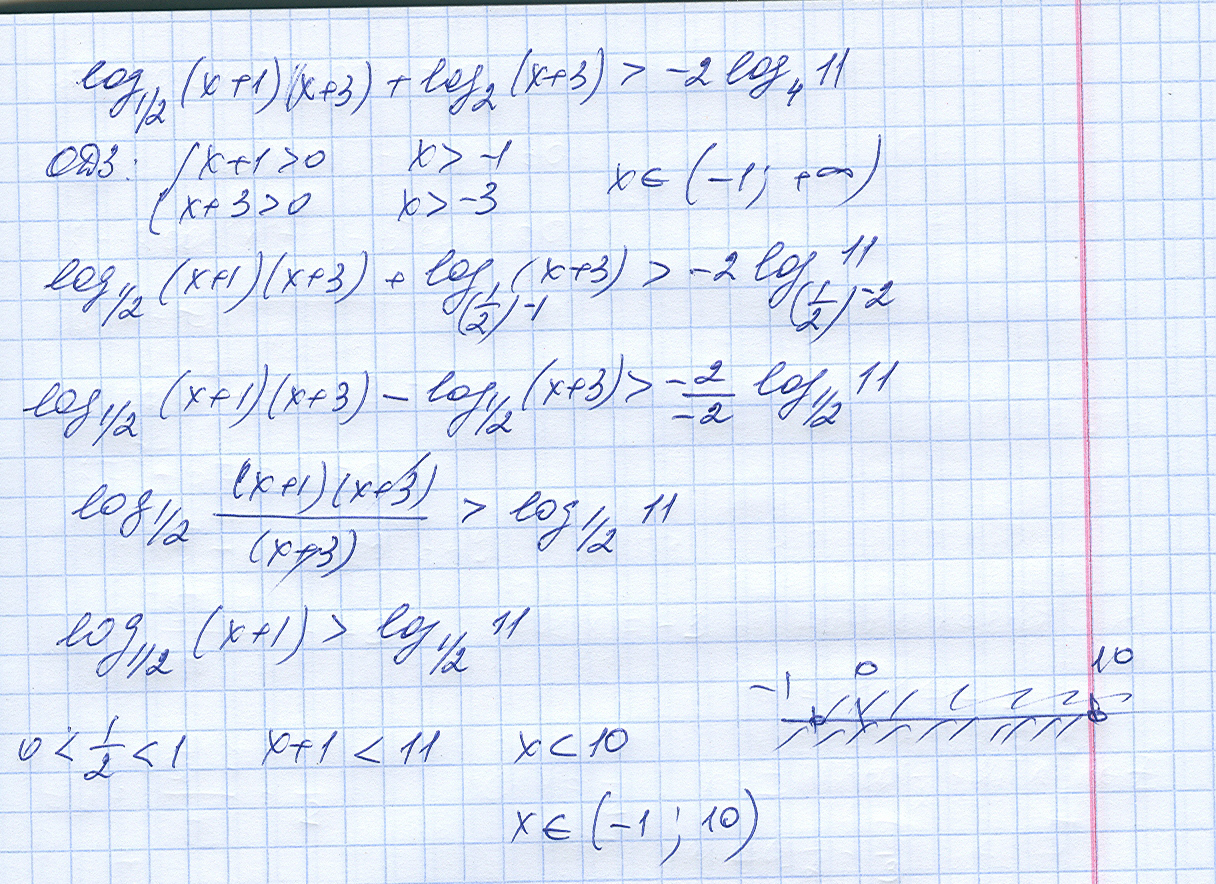 log_{1/2} (x+1)(x+3) + log_2 (x+3) > -2 log_4 11
ОДЗ: { x+1>0 x>-1 x∈(-1; +∞)
x+3>0 x>-3
log_{1/2} (x+1)(x+3) + log_{(1/2)^{-1}} (x+3) > -2 log_{(1/2)^{-2}} 11
log_{1/2} (x+1)(x+3) - log_{1/2} (x+3) > \frac{-2}{-2} log_{1/2} 11
log_{1/2} \frac{(x+1)(x+3)}{(x+3)} > log_{1/2} 11
log_{1/2} (x+1) > log_{1/2} 11
-1 0 10
0 < \frac{1}{2} < 1 x+1 < 11 x<10
x∈(-1; 10)